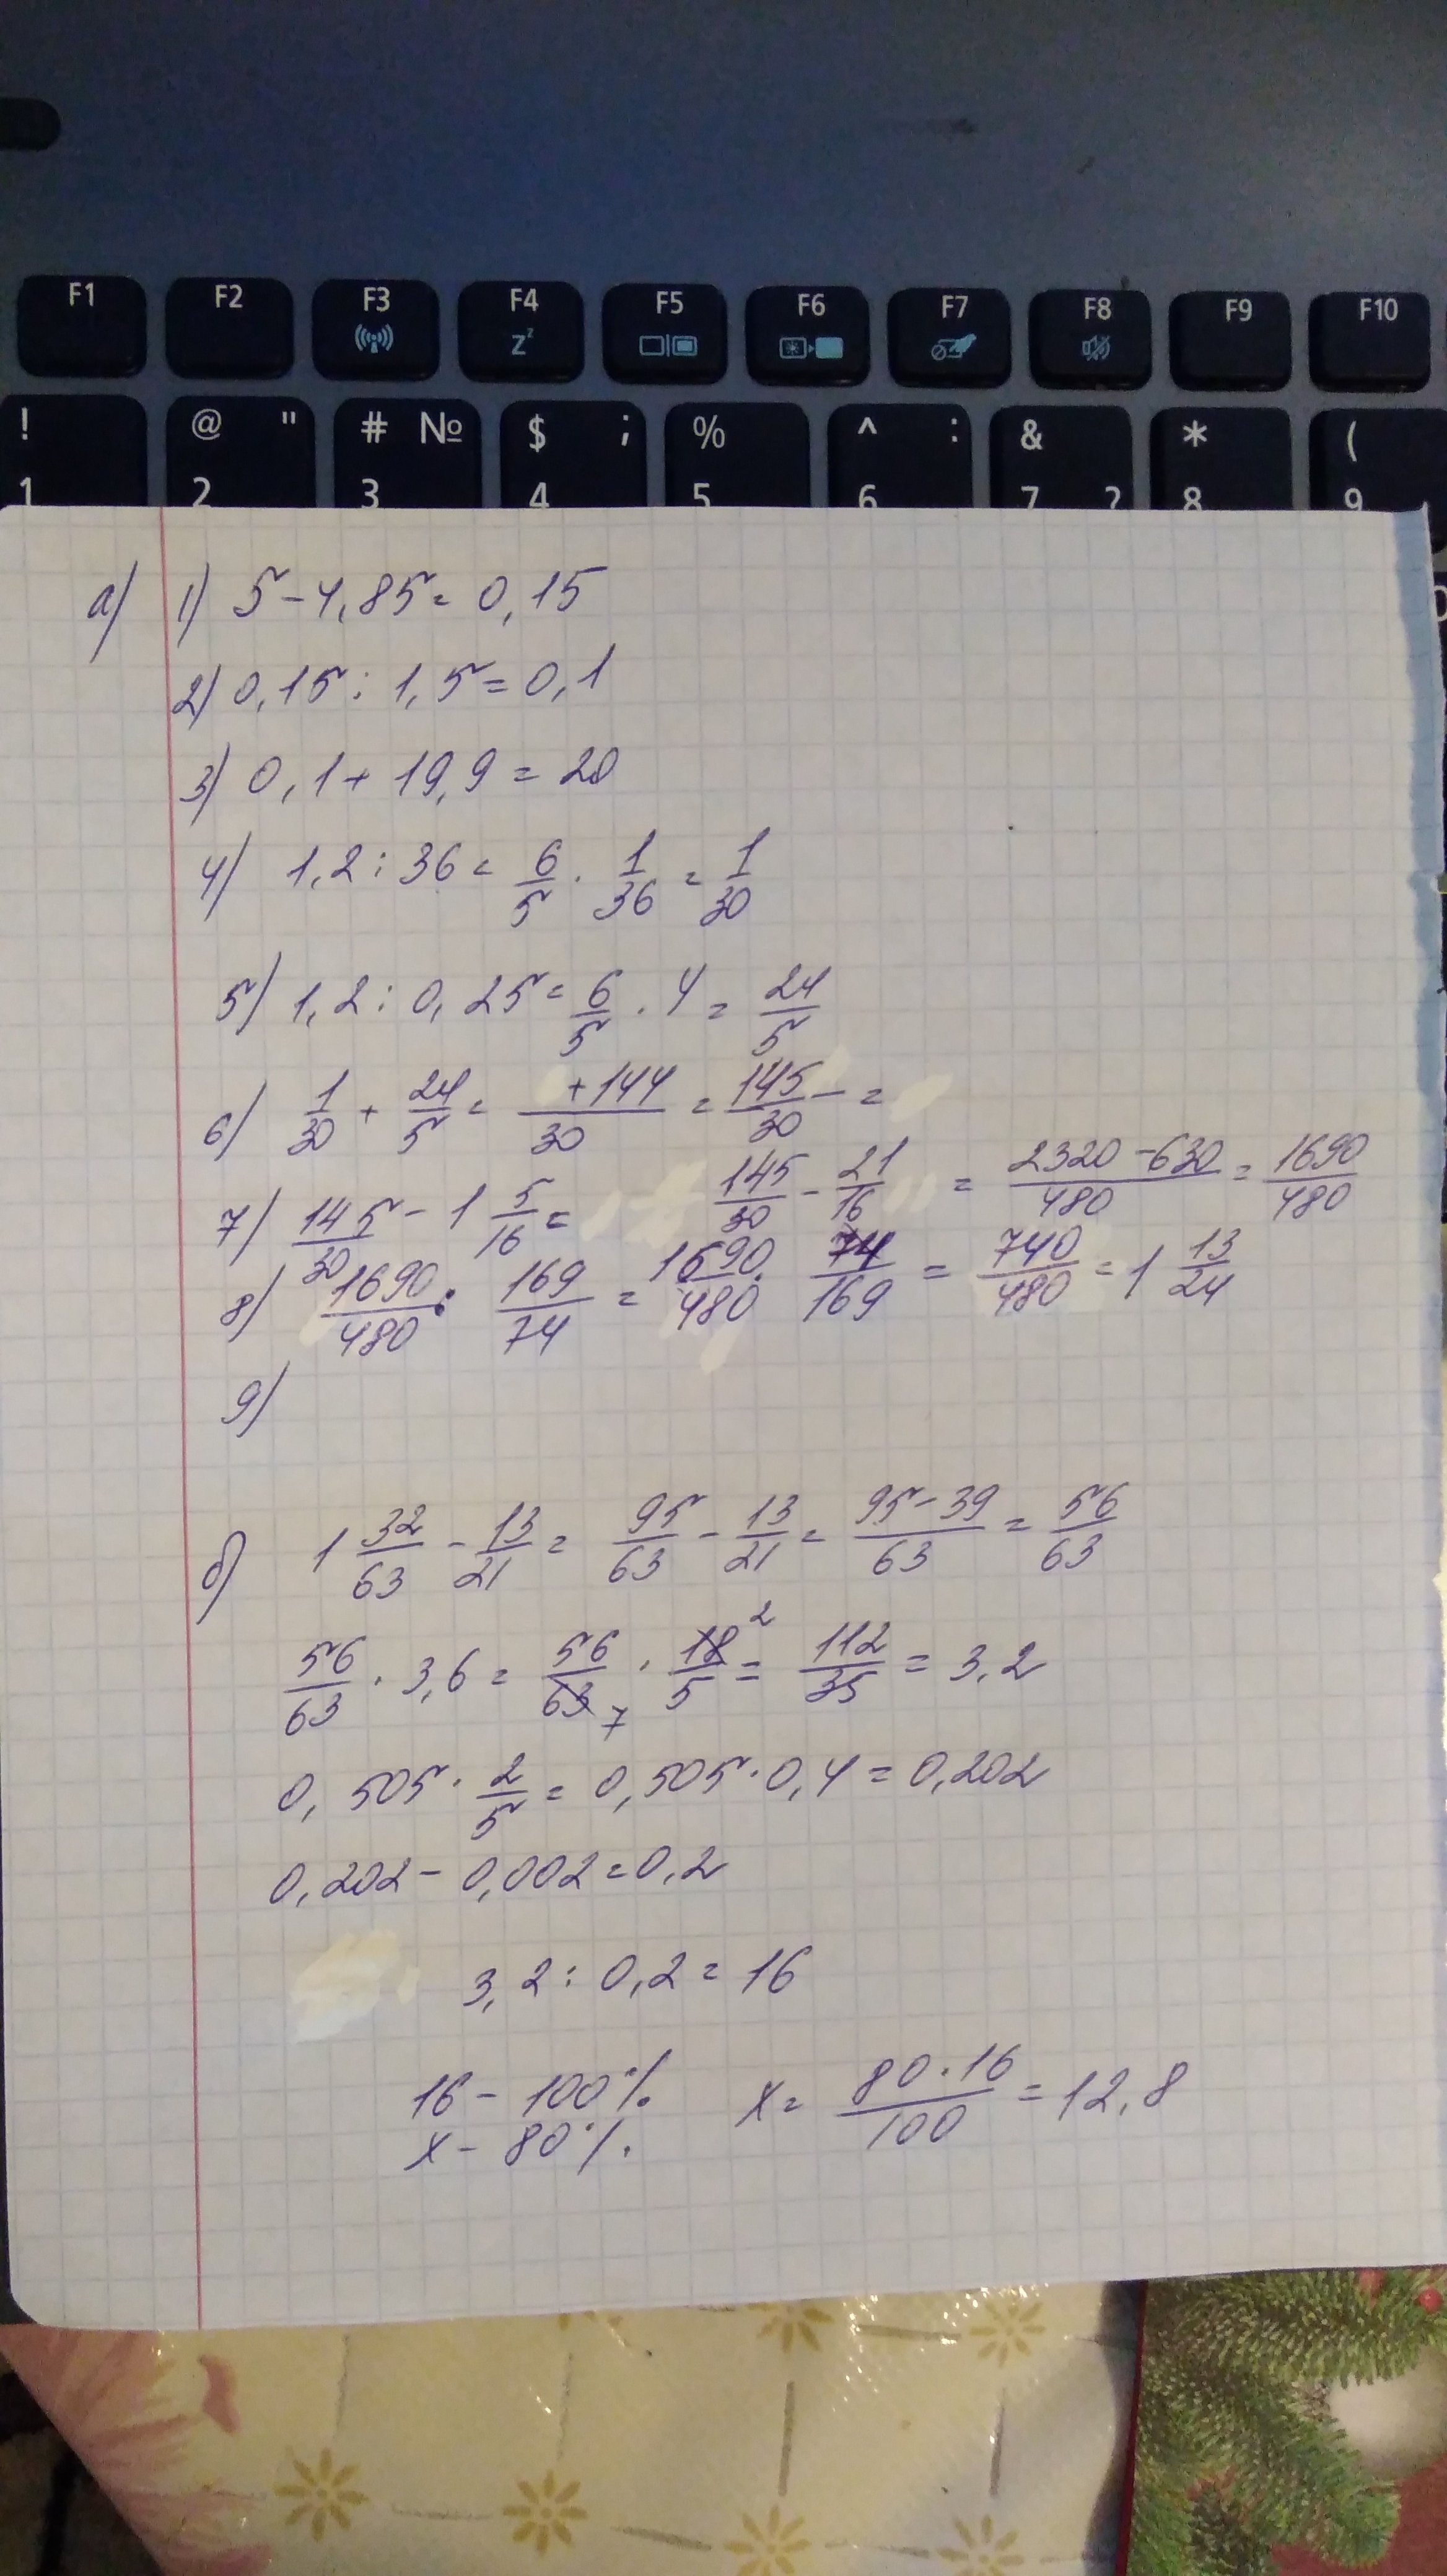 F1 F2 F3 F4 Zz F5 F6 F7 F8 F9 F10
! @ " # № $ ; % ^ : & * (
1 2 3 4 5 6 7 ? 8 9
а) 1) 5 - 4,85 = 0,15
2) 0,15 : 1,5 = 0,1
3) 0,1 + 19,9 = 20
4) 1,2 : 36 = 6/5 · 1/36 = 1/30
5) 1,2 : 0,25 = 6/5 · 4 = 24/5
6) 1/30 + 24/5 = +144/30 = 145/30 - =
7) 145/30 - 1 5/16 = 145/30 - 21/16 = 2320-630/480 = 1690/480
8) 1690/480 : 169/74 = 1690/480 · 74/169 = 740/480 = 1 13/24
9)
б) 1 32/63 - 13/21 = 95/63 - 13/21 = 95-39/63 = 56/63
56/63 · 3,6 = 56/63 7 · 18 2/5 = 112/35 = 3,2
0,505 · 2/5 = 0,505 · 0,4 = 0,202
0,202 - 0,002 = 0,2
3,2 : 0,2 = 16
16 - 100%
x - 80%. x = 80·16/100 = 12,8